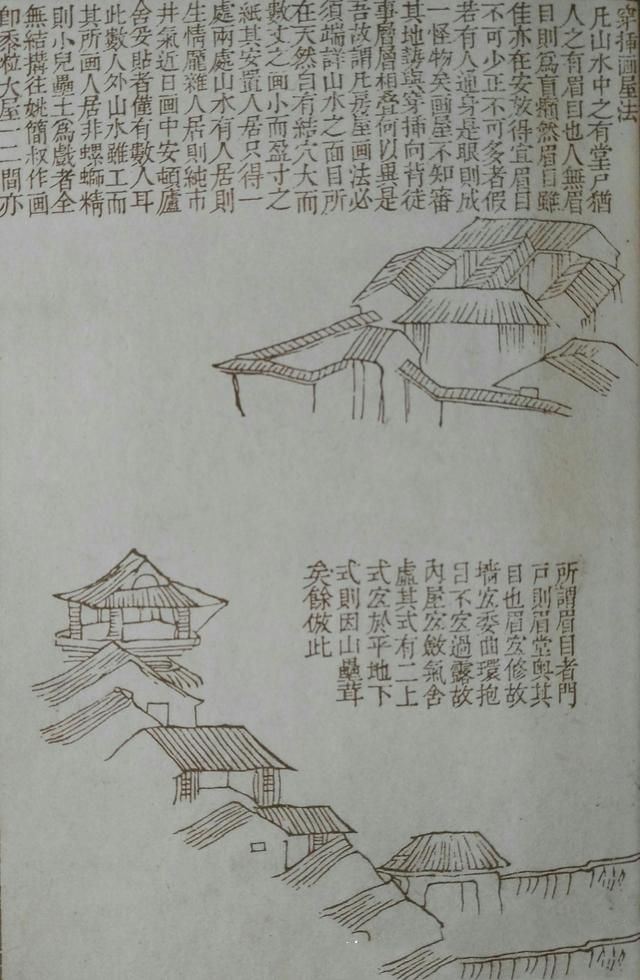 穿插画屋法
凡山水中之有堂戶猶
人之有眉目也人無眉
目則爲盲癩然眉目雖
佳亦在安放得宜眉目
不可少正不可多者假
若有人通身是眼則成
一怪物矣画屋不知審
其地勢與穿插向背徒
事層層相疊何以異是
吾故謂凡房屋画法必
須端詳山水之面目所
在天然自有結穴大而
數丈之画小而盈寸之
紙其安置人居只得一
處兩處山水有人居則
生情龐雜人居則純市
井氣近日画中安頓廬
舍妥貼者僅有數人耳
此數人外山水雖工而
其所画人居非螺螄精
則小兒壘土爲戲者全
無結搆在姚簡叔作画
即黍粒大屋一二間亦
所謂眉目者門
戶則眉堂奧其
目也眉宜修故
墻宜委曲環抱
目不宜過露故
內屋宜斂氣含
虛其式有二上
式宜於平地下
式則因山壘葺
矣餘倣此